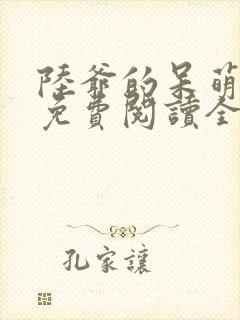 陸爺的呆萌
免費閱讀全
孔家讓